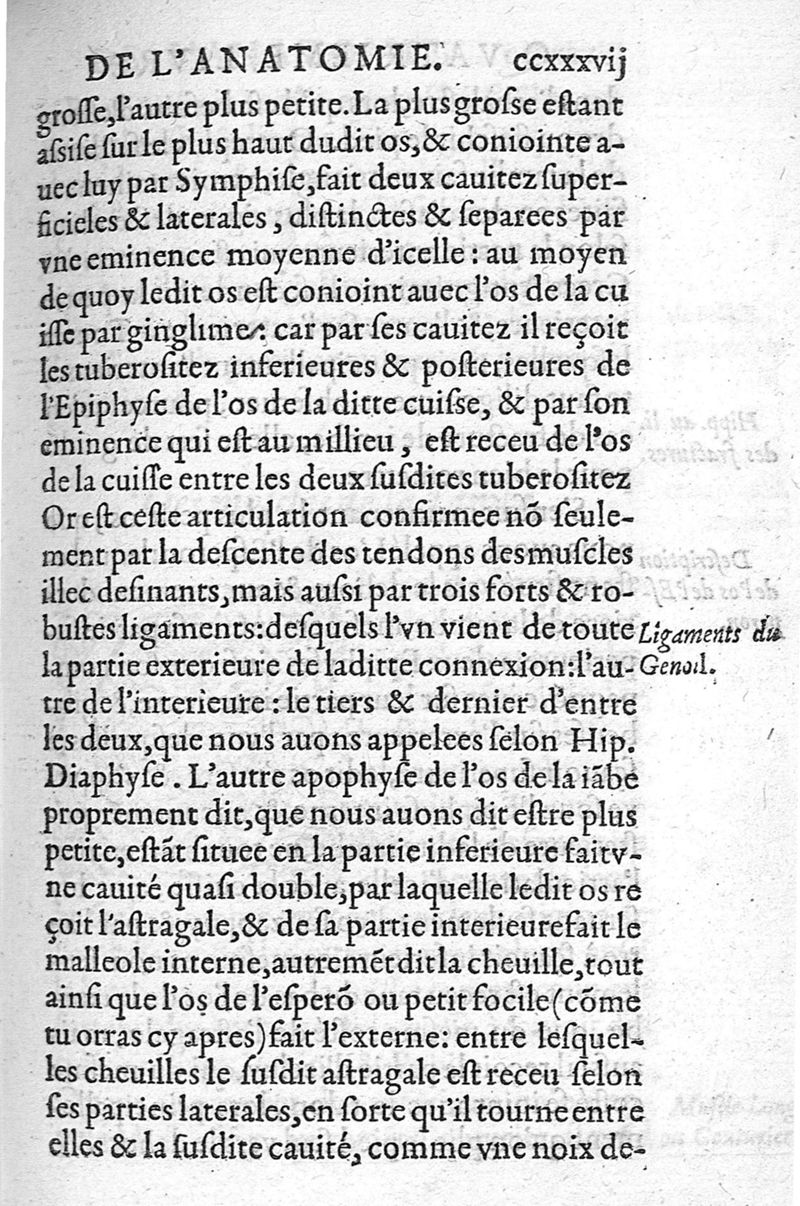 DE L'ANATOMIE. ccxxxvij
groſſe,l'autre plus petite.La plus groſse eſtant
aſsiſe ſur le plus haut dudit os,& coniointe a-
uec luy par Symphiſe,fait deux cauitez ſuper-
ficieles & laterales , diſtinctes & ſeparees par
vne eminence moyenne d'icelle : au moyen
de quoy ledit os eſt conioint auec l'os de la cu
iſſe par ginglime: car par ſes cauitez il reçoit
les tuberoſitez inferieures & poſterieures de
l'Epiphyſe de l'os de la ditte cuiſse, & par ſon
eminence qui eſt au millieu , eſt receu de l'os
de la cuiſſe entre les deux ſuſdites tuberoſitez
Or eſt ceſte articulation confirmee nõ ſeule-
ment par la deſcente des tendons des muſcles
illec deſinants,mais auſsi par trois forts & ro-
buſtes ligaments:deſquels l'vn vient de toute
Ligaments du
la partie exterieure de laditte connexion:l'au-
Genoil.
tre de l'interieure : le tiers & dernier d'entre
les deux,que nous auons appelees ſelon Hip.
Diaphyſe . L'autre apophyſe de l'os de la iãbe
proprement dit,que nous auons dit eſtre plus
petite,eſtãt ſituee en la partie inferieure fait v-
ne cauité quaſi double,par laquelle ledit os re
çoit l'aſtragale,& de ſa partie interieure fait le
malleole interne,autremẽt dit la cheuille,tout
ainſi que l'os de l'eſperõ ou petit focile(cõme
tu orras cy apres)fait l'externe: entre leſquel-
les cheuilles le ſuſdit aſtragale eſt receu ſelon
ſes parties laterales,en ſorte qu'il tourne entre
elles & la ſuſdite cauité, comme vne noix de-